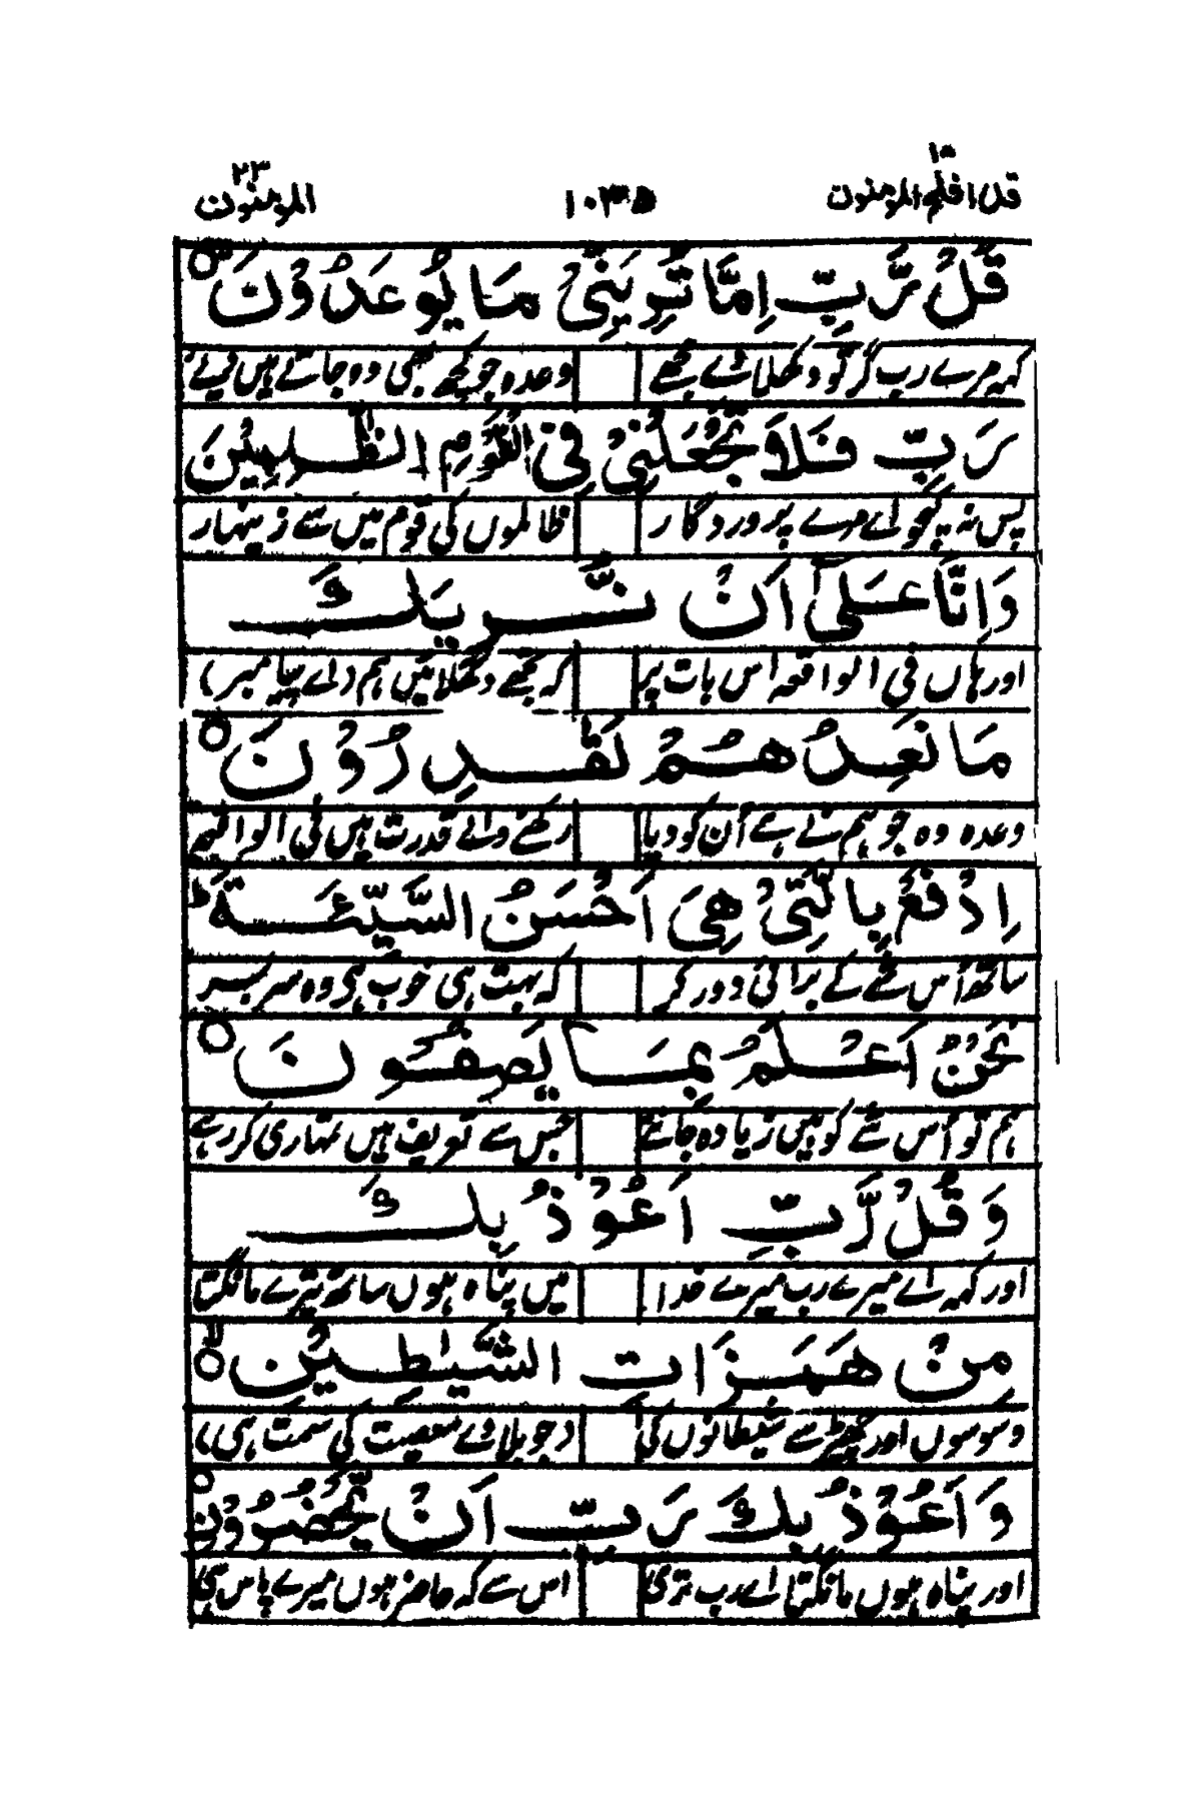 ۱۸
۲۳
قد افلح المؤمنون ۱۰۳۵ المؤمنون
قُلْ رَّبِّ اِمَّا تُرِیَنِّیْ مَا یُوْعَدُوْنَ ○
کہہ مرے رب گر تو دکھلائے مجھے وعدہ جو کچھ بھی دہ جاتے ہیں دیئے
رَبِّ فَلَا تَجْعَلْنِیْ فِی الْقَوْمِ الظّٰلِمِیْنَ
پس نہ پکجو اے مرے پروردگار ظالموں کی قوم میں سے زینہار
وَاِنَّا عَلٰٓی اَنْ نُّرِیَكَ
اور ہاں فی الواقعہ اس بات پر کہ تجھے دکھلائیں ہم (اے پیامبر)
مَا نَعِدُهُمْ لَقٰدِرُوْنَ ○
وعدہ وہ جو ہم نے ہے اُن کو دیا رکھنے والے قدرت ہیں فی الواقعہ
اِدْفَعْ بِالَّتِیْ هِیَ اَحْسَنُ السَّیِّئَةَ ط
ساتھ اُس شے کے برائی دور کر کہ بہت ہی خوب ہو وہ سر بسر
نَحْنُ اَعْلَمُ بِمَا یَصِفُوْنَ ○
ہم تو اُس شے کو ہیں زیادہ جانتے جس سے تعریف ہیں تمہاری کر رہے
وَقُلْ رَّبِّ اَعُوْذُ بِكَ
اور کہہ اے میرے رب میرے خدا میں پناہ ہوں ساتھ تیرے مانگتا
مِنْ هَمَزٰتِ الشَّیٰطِیْنِ ○ لا
وسوسوں اور سے شیطانوں کی (جو بلاوے معصیت کی سمت ہی)
وَاَعُوْذُ بِكَ رَبِّ اَنْ یَّحْضُرُوْنِ ○
اور پناہ ہوں مانگتا اے رب تری اس سے کہ حاضر ہوں میرے پاس ہی